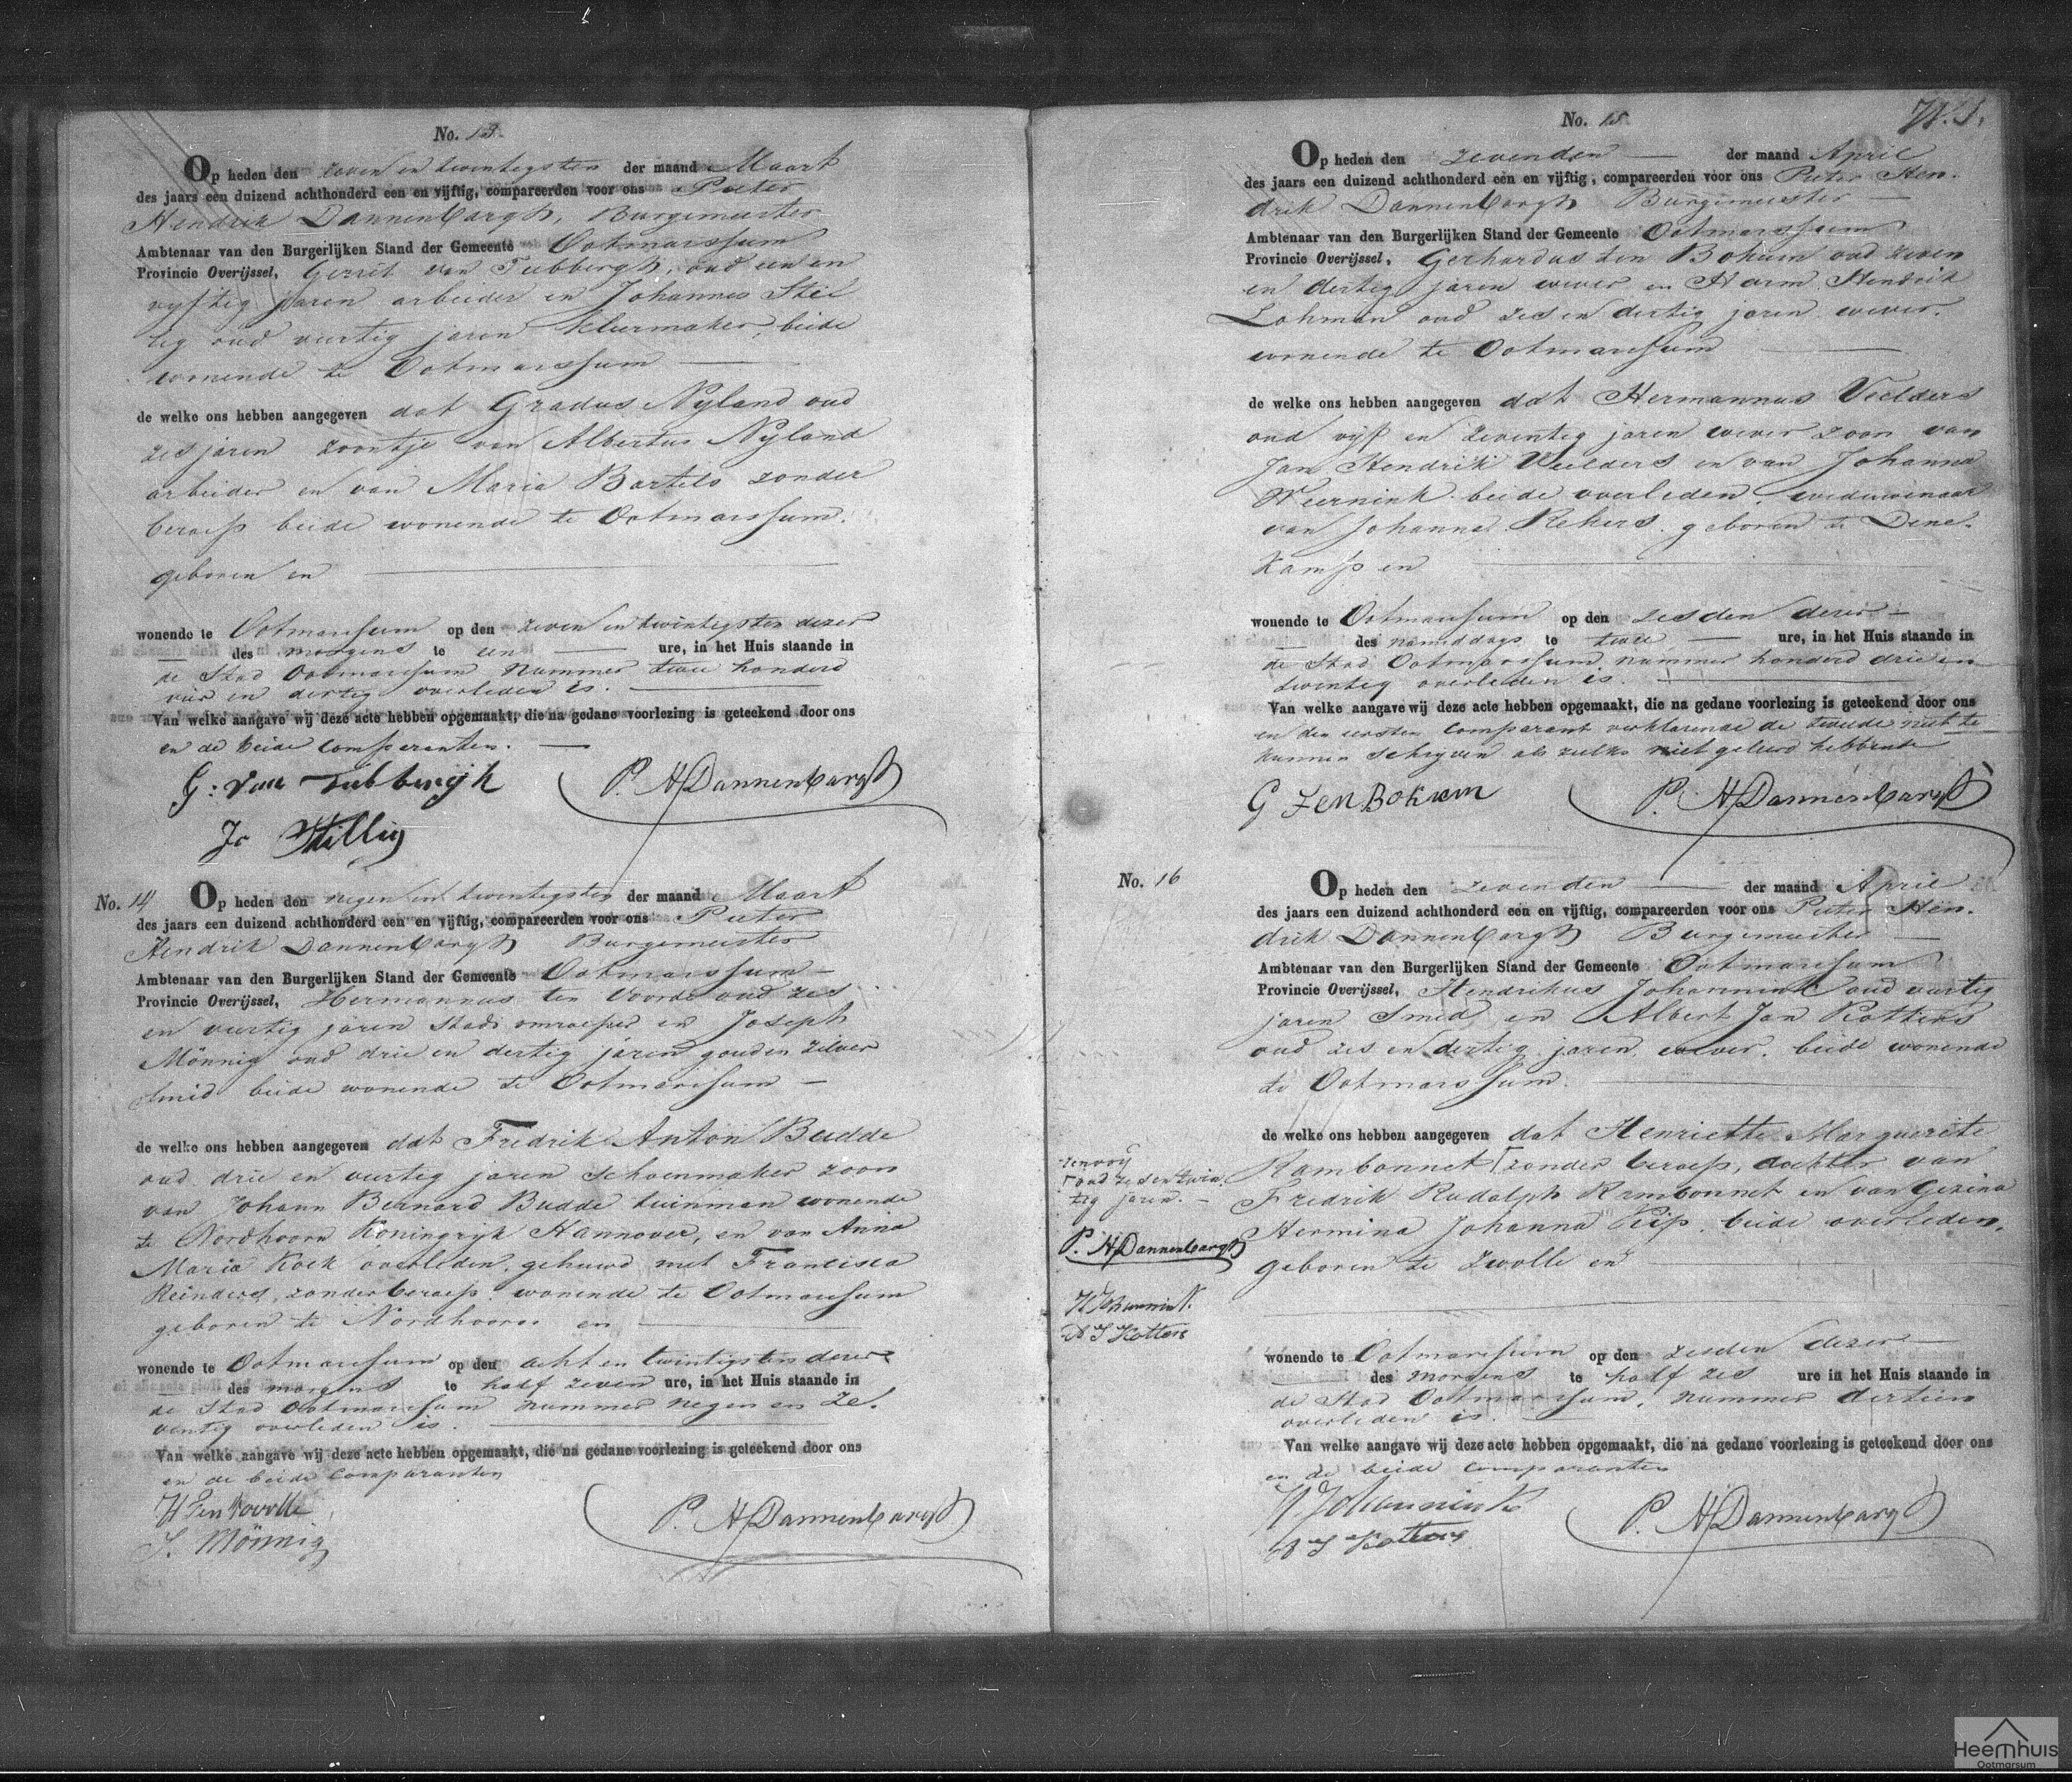 No. 13.
Op heden den zeven en twintigsten der maand Maart
des jaars een duizend achthonderd een en vijftig, compareerden voor ons Pieter
Hendrik Dannenbargh, Burgemeester
Ambtenaar van den Burgerlijken Stand der Gemeente Ootmarssum
Provincie Overijssel, Gerrit van Tubbergh, oud een en
vyftig jaren arbeider en Johannes Stil
lig oud veertig jaren kleermaker, beide
wonende te Ootmarssum
de welke ons hebben aangegeven dat Gradus Nyland oud
zes jaren zoontje van Albertus Nyland
arbeider en van Maria Bartels zonder
beroep beide wonende te Ootmarssum.
geboren en
wonende te Ootmarssum op den zeven en twintigsten dezer
des morgens te een ure, in het Huis staande in
de Stad Ootmarssum nummer twee honderd
vier en dertig overleden is.
Van welke aangave wij deze acte hebben opgemaakt, die na gedane voorlezing is geteekend door ons
en de beide comparanten.
G: van Tubbergh P. H Dannenbargh
Jo Stillig
No. 14 Op heden den negen en twintigsten der maand Maart
des jaars een duizend achthonderd een en vijftig, compareerden voor ons Pieter
Hendrik Dannenbargh Burgemeester
Ambtenaar van den Burgerlijken Stand der Gemeente Ootmarssum
Provincie Overijssel, Hermannus ten Voorde oud zes
en veertig jaren Stads omroeper en Joseph
Mönnig oud drie en dertig jaren goud en zilver
smid beide wonende te Ootmarssum
de welke ons hebben aangegeven dat Fredrik Anton Budde
oud drie en veertig jaren schoenmaker zoon
van Johann Bernard Budde tuinman wonende
te Nordhoorn Koningryk Hannover, en van Anna
Maria Kock overleden, gehuwd met Francisca
Reinders, zonder beroep. wonende te Ootmarssum
geboren te Nordhoorn en
wonende te Ootmarssum op den acht en twintigsten dezer
des morgens te half zeven ure, in het Huis staande in
de Stad Ootmarssum nummer negen en ze.
ventig overleden is.
Van welke aangave wij deze acte hebben opgemaakt, die na gedane voorlezing is geteekend door ons
en de beide comparanten
H Ten P. H Dannenbargh
J. Mönnig
No. 15
Op heden den zevenden der maand April
des jaars een duizend achthonderd een en vijftig, compareerden voor ons Pieter Hen.
drik Dannenbargh Burgemeester
Ambtenaar van den Burgerlijken Stand der Gemeente Ootmarssum
Provincie Overijssel, Gerhardus ten Bokum oud zeven
en dertig jaren wever en Harm Hendrik
Lohman oud zes en dertig jaren wever.
wonende te Ootmarssum
de welke ons hebben aangegeven dat Hermannus Veelders
oud vyf en zeventig jaren wever zoon van
Jan Hendrik Veelders en van Johanna
Weernink beide overleden. weduwenaar
van Johanna Rekers. geboren te Dene.
kamp en
wonende te Ootmarssum op den zesden dezer
des namiddags te twee ure, in het Huis staande in
de Stad Ootmarssum, nummer honderd drie en
twintig overleden is.
Van welke aangave wij deze acte hebben opgemaakt, die na gedane voorlezing is geteekend door ons
en den eersten comparant verklarende de tweede niet te
kunnen schryven als zulks niet geleerd hebbende
G Ten Bokum P. H Dannenbargh
No. 16 Op heden den zevenden der maand April
des jaars een duizend achthonderd een en vijftig, compareerden voor ons Pieter Hen.
drik Dannenbargh Burgemeester
Ambtenaar van den Burgerlijken Stand der Gemeente Ootmarssum
Provincie Overijssel, Hendrikus Johannink oud veertig
jaren Smid en Albert Jan Kotters
oud zes en dertig jaren wever. beide wonende
te Ootmarssum.
de welke ons hebben aangegeven dat Henriette Marguerite
Rambonnet zonder beroep, dochter van
Fredrik Rudolph Rambonnet en van Gezina
Hermina Johanna Kip. beide overleden.
geboren te Zwolle en
renvoy
oud zes en twin
tig jaren.
P. H Dannenbargh
H Johannink.
A J Kotters
wonende te Ootmarssum op den zesden dezer
des morgens te half zes ure in het Huis staande in
de Stad Ootmarssum, nummer dertien
overleden is.
Van welke aangave wij deze acte hebben opgemaakt, die na gedane voorlezing is geteekend door ons
en de beide comparanten
H Johannink P. H Dannenbargh
A J Kotters
Heemhuis
Ootmarsum